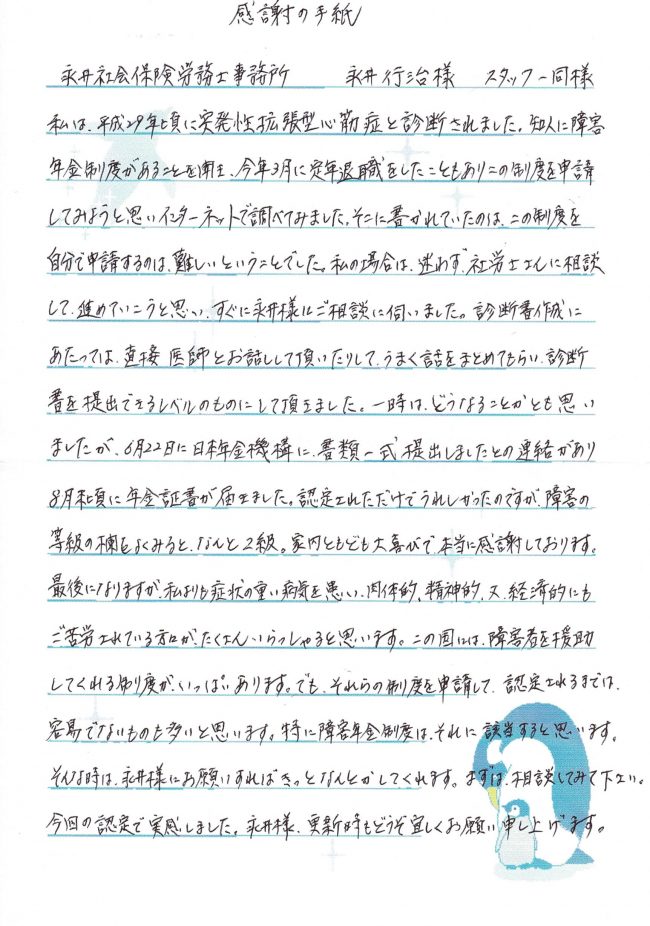 感謝の手紙
永井社会保険労務士事務所　　永井行治様　スタッフ一同様
私は、平成29年頃に突発性拡張型心筋症と診断されました。知人に障害
年金制度があることを聞き、今年3月に定年退職をしたこともありこの制度を申請
してみようと思いインターネットで調べてみました。そこに書かれていたのは、この制度を
自分で申請するのは、難しいということでした。私の場合は、迷わず、社労士さんに相談
して、進めていこうと思い、すぐに永井様にご相談に伺いました。診断書作成に
あたっては、直接医師とお話しして頂いたりして、うまく話をまとめてもらい、診断
書を提出できるレベルのものにして頂きました。一時は、どうなることかとも思い
ましたが、6月22日に日本年金機構に、書類一式提出しましたとの連絡があり
8月末頃に年金証書が届きました。認定されただけでうれしかったのですが、障害の
等級の欄をよくみると、なんと2級。家内ともども大喜びで、本当に感謝しております。
最後になりますが、私よりも症状の重い病気を患い、肉体的、精神的、又、経済的にも
ご苦労されている方々が、たくさんいらっしゃると思います。この国には、障害者を援助
してくれる制度が、いっぱいあります。でも、それらの制度を申請して、認定されるまでは、
容易でないものも多いと思います。特に障害年金制度は、それに該当すると思います。
そんな時は、永井様にお願いすればきっとなんとかしてくれます。まずは、相談してみて下さい。
今回の認定で実感しました。永井様、更新時もどうぞ宜しくお願い申し上げます。